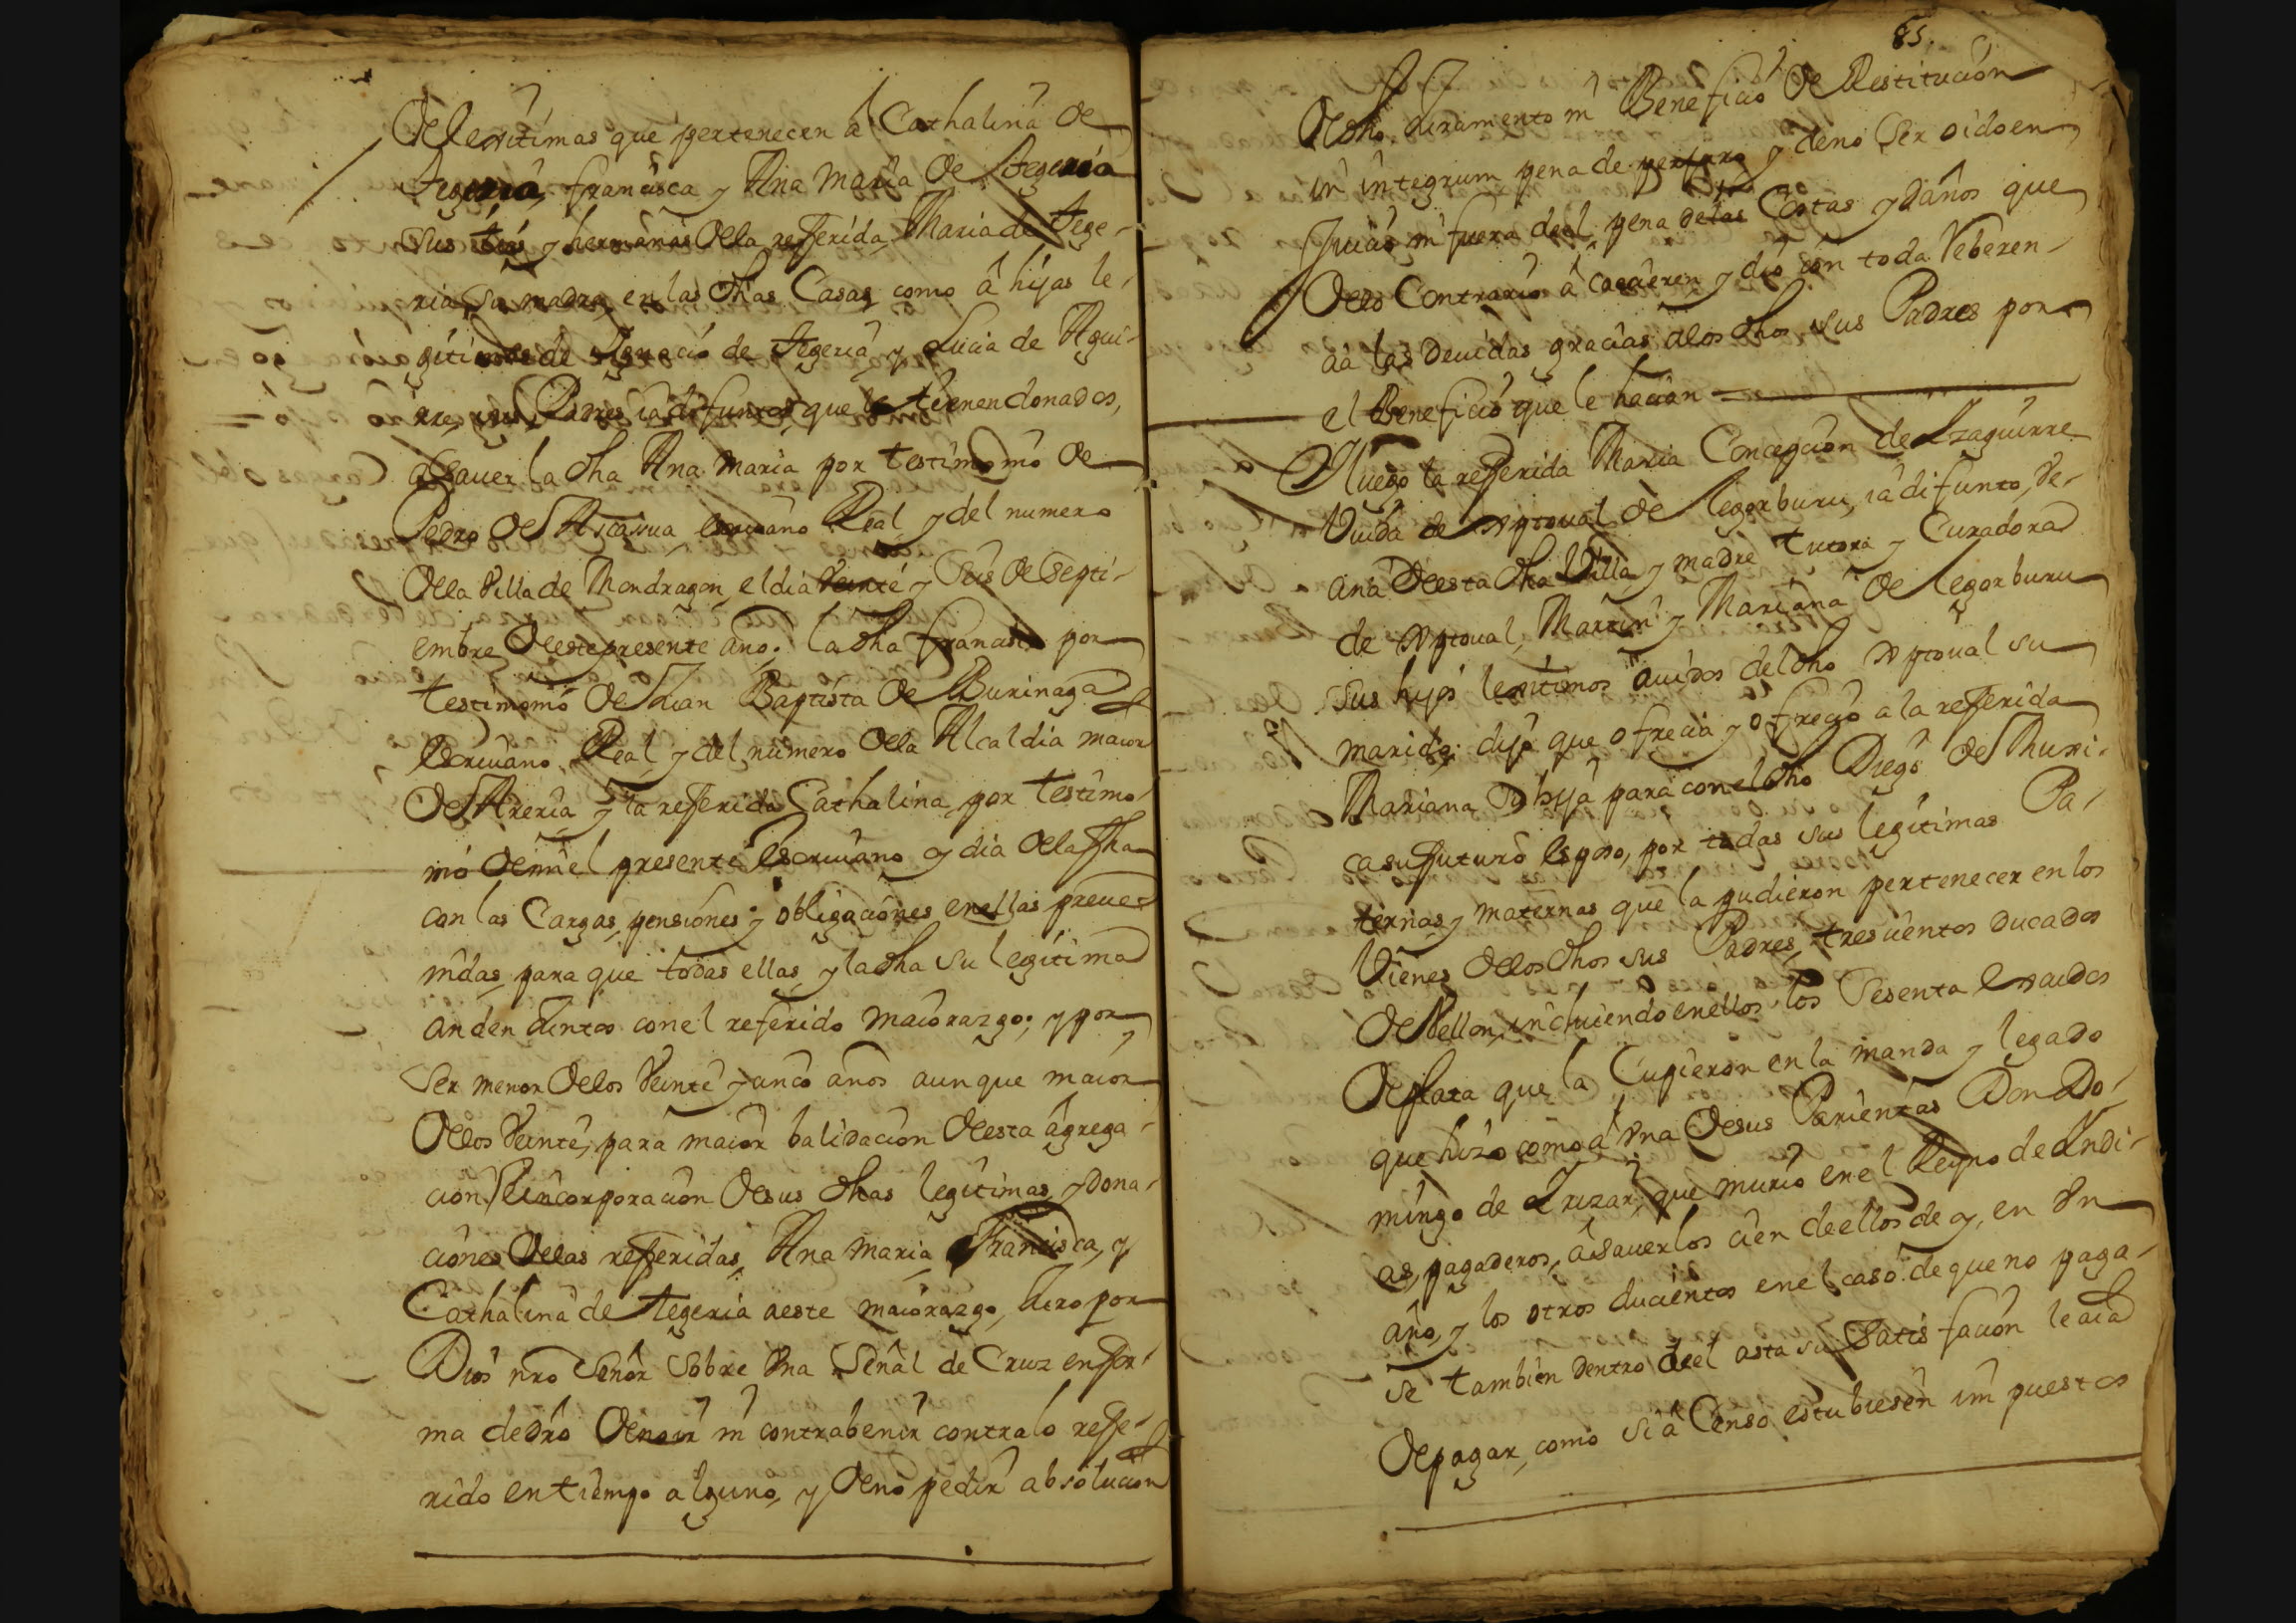 De lexitimas que pertenecen a Cathalina de
Tegeria, francisca y Ana Maria de Tegeria
sus tias y hermanas della referida Maria de Tege-
ria, su madre, en las dhas Casas, como â hijas le-
gitimas de Ignacio de Tegeria, y Lucia de Agui-
rre, sus Padres, ia difuntos, que le tienen donados,
a saver la dha Ana Maria por testimonio de
Pedro de Ascasua escriuano Real y del numero
della Villa de Mondragon, el dia Veinte y Seis de Septi-
embre deeste presente año; la dha francisca por
testimonio de Juan Baptista de Burinaga
Escriuano Real, y del numero della Alcaldia maior
de Areria y la referida Cathalina, por testimo-
nio demi el presente Escriuano oy dia dela fha
con las Cargas, pensiones, y obligaciones en ellas preue-
nidas, para que todas ellas, y la dha su legitima
anden Juntos con el referido maiorazgo; y por
Ser menor dellos Veinte y cinco años aunque maior
dellos Veinte, para maior balidacion desta âgrega-
cion, e incorporacion de sus dhas legitimas, y dona-
ciones dellas referidas, Ana maria, Francisca, y
Cathalina de Tegeria aeste maiorazgo, Juro por
Dios nro Señor Sobre Vna Señal de Cruz en for-
ma de dro de no ir ni contrabenir contra lo refe-
rido en tiempo alguno, y de no pedir absolucion
85.
de dho Juramento ni Beneficio de Restitucion
in integrum pena de perjuro y de no Ser oido en
Juicio ni fuera deel pena delas Costas y daños que
dello Contrario â caecieren y dio con toda Reberen-
cia las devidas gracias alos dhos sus Padres por
el Beneficio que le hacian
Y luego la referida Maria Concepcion de Izaguirre
Viuda de Xptoual de legorburu, ia difunto, Ve-
cina desta dha Villa y madre tutora y Curadora
de Xptoual, Martin y Mariana de legorburu
sus hijos lexitimos auidos del dho Xptoual su
marido; dijo que ofrecia y ofrecio a la referida
Mariana su hija para con el dho Diego de Muxi-
ca su futuro esposo, por todas sus legitimas Pa-
ternas y maternas que la pudieron pertenecer en los
Vienes dellos dhos sus Padres, trescientos ducados
de Vellon, incluiendo en ellos los Sesenta escudos
de plata que la Cupieron en la manda y legado
que hizo como a Vna de sus Parientas Don Do-
mingo de Irizar, que murio en el Reyno de Indi-
as, pagaderos, â saverlos cien deellos de oy, en Vn
año, y los otros ducientos en el caso de que no paga-
se tambien dentro deel asta su Satisfacion le aia
de pagar, como si â Censo estubiesen impuestos